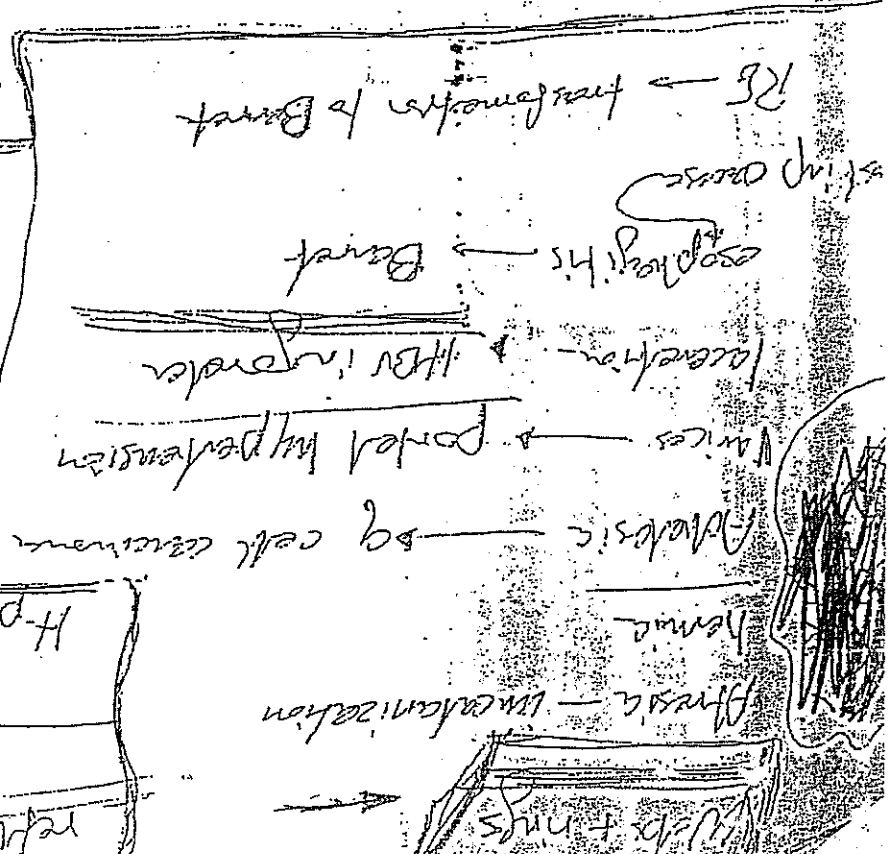 Webs + rings
refl
Atresia — uncatanization
hernia
H-p
Achalasia → sq cell carcinoma
Varices → portal hypertension
laceration → HBV in
esophagitis → Barret
RE → transformation to Barret